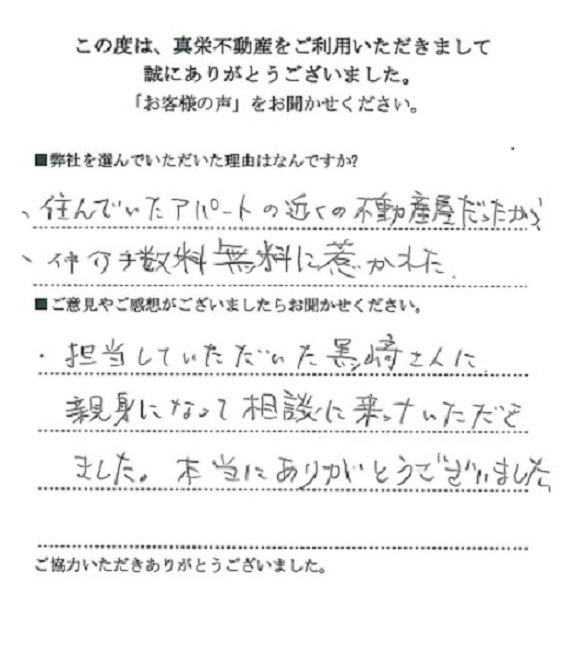 この度は、真栄不動産をご利用いただきまして
誠にありがとうございました。
「お客様の声」をお聞かせください。
■弊社を選んでいただいた理由はなんですか?
、住んでいたアパートの近くの不動産屋だったから
、仲介手数料無料に惹かれた.
■ご意見やご感想がございましたらお聞かせください。
・担当していただいた黒崎さんに
親身になって相談に乗っていただき
ました。本当にありがとうございました
ご協力いただきありがとうございました。